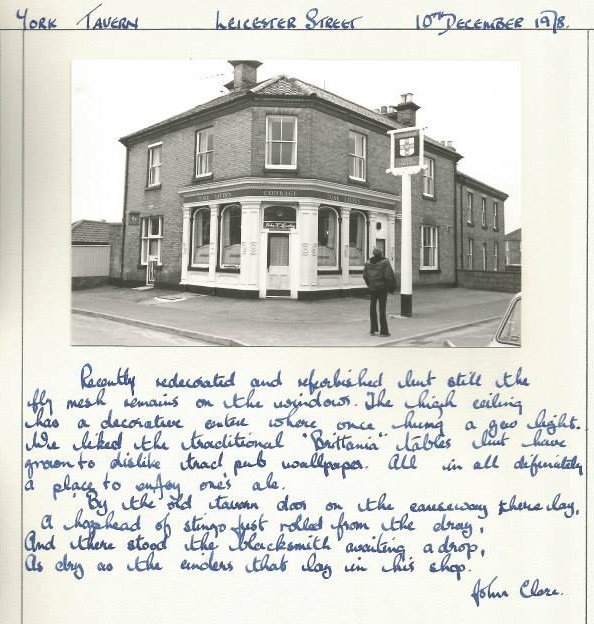 YORK TAVERN LEICESTER STREET 10TH DECEMBER 1978.
COURAGE
Recently redecorated and refurbished but still the
fly mesh remains on the windows. The high ceiling
has a decorative centre where once hung a gas light.
We liked the traditional "Brittania" tables but have
grown to dislike trad pub wallpaper. All in all difinately
a place to enjoy one's ale.
'By the old tavern door on the causeway there lay,
A hogshead of stingo just rolled from the dray,
And there stood the blacksmith awaiting a drop,
As dry as the cinders that lay in his shop.
John Clare.